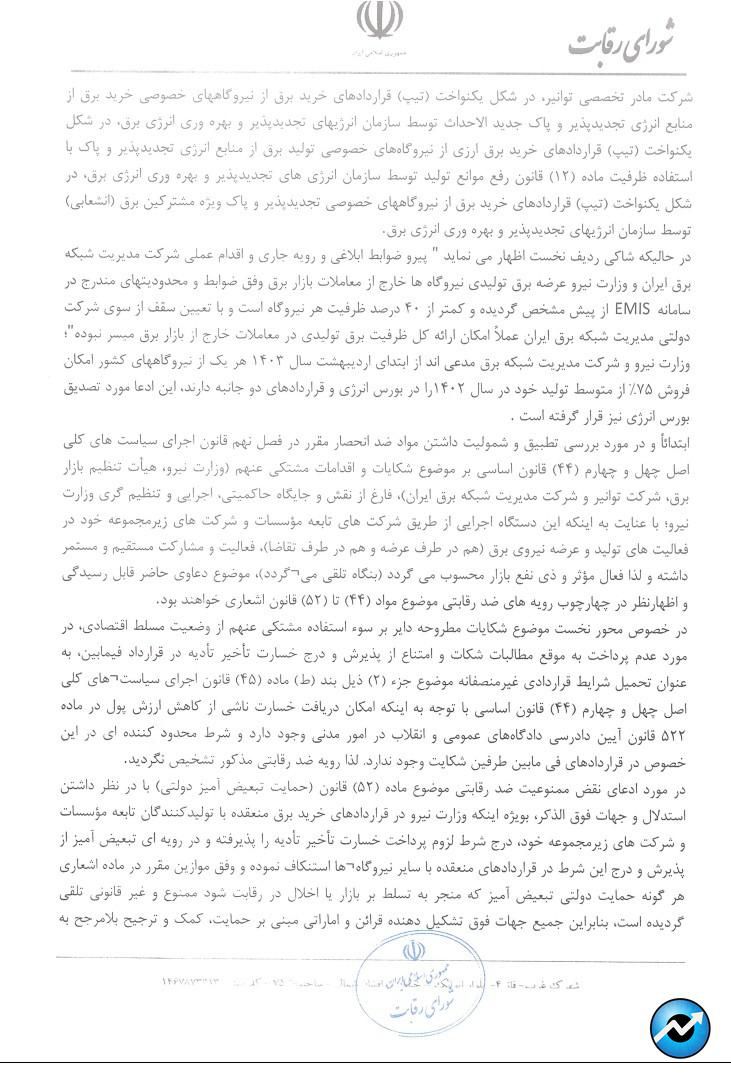 شورای رقابت
جمهوری اسلامی ایران
شرکت مادر تخصصی توانیر، در شکل یکنواخت (تیپ) قراردادهای خرید برق از نیروگاههای خصوصی خرید برق از
منابع انرژی تجدیدپذیر و پاک جدید الاحداث توسط سازمان انرژیهای تجدیدپذیر و بهره وری انرژی برق، در شکل
یکنواخت (تیپ) قراردادهای خرید برق ارزی از نیروگاه‌های خصوصی تولید برق از منابع انرژی تجدیدپذیر و پاک با
استفاده ظرفیت ماده (۱۲) قانون رفع موانع تولید توسط سازمان انرژی های تجدیدپذیر و بهره وری انرژی برق، در
شکل یکنواخت (تیپ) قراردادهای خرید برق از نیروگاههای خصوصی تجدیدپذیر و پاک ویژه مشترکین برق (انشعابی)
توسط سازمان انرژیهای تجدیدپذیر و بهره وری انرژی برق.
در حالیکه شاکی ردیف نخست اظهار می نماید " پیرو ضوابط ابلاغی و رویه جاری و اقدام عملی شرکت مدیریت شبکه
برق ایران و وزارت نیرو عرضه برق تولیدی نیروگاه ها خارج از معاملات بازار برق وفق ضوابط و محدودیتهای مندرج در
سامانه EMIS از پیش مشخص گردیده و کمتر از ۴۰ درصد ظرفیت هر نیروگاه است و با تعیین سقف از سوی شرکت
دولتی مدیریت شبکه برق ایران عملاً امکان ارائه کل ظرفیت برق تولیدی در معاملات خارج از بازار برق میسر نبوده"؛
وزارت نیرو و شرکت مدیریت شبکه برق مدعی اند از ابتدای اردیبهشت سال ۱۴۰۳ هر یک از نیروگاههای کشور امکان
فروش ۷۵٪ از متوسط تولید خود در سال ۱۴۰۲را در بورس انرژی و قراردادهای دو جانبه دارند، این ادعا مورد تصدیق
بورس انرژی نیز قرار گرفته است .
ابتدائاً و در مورد بررسی تطبیق و شمولیت داشتن مواد ضد انحصار مقرر در فصل نهم قانون اجرای سیاست های کلی
اصل چهل و چهارم (۴۴) قانون اساسی بر موضوع شکایات و اقدامات مشتکی عنهم (وزارت نیرو، هیأت تنظیم بازار
برق، شرکت توانیر و شرکت مدیریت شبکه برق ایران)، فارغ از نقش و جایگاه حاکمیتی، اجرایی و تنظیم گری وزارت
نیرو؛ با عنایت به اینکه این دستگاه اجرایی از طریق شرکت های تابعه مؤسسات و شرکت های زیرمجموعه خود در
فعالیت های تولید و عرضه نیروی برق (هم در طرف عرضه و هم در طرف تقاضا)، فعالیت و مشارکت مستقیم و مستمر
داشته و لذا فعال مؤثر و ذی نفع بازار محسوب می گردد (بنگاه تلقی می¬گردد)، موضوع دعاوی حاضر قابل رسیدگی
و اظهارنظر در چهارچوب رویه های ضد رقابتی موضوع مواد (۴۴) تا (۵۲) قانون اشعاری خواهند بود.
در خصوص محور نخست موضوع شکایات مطروحه دایر بر سوء استفاده مشتکی عنهم از وضعیت مسلط اقتصادی، در
مورد عدم پرداخت به موقع مطالبات شکات و امتناع از پذیرش و درج خسارت تأخیر تأدیه در قرارداد فیمابین، به
عنوان تحمیل شرایط قراردادی غیرمنصفانه موضوع جزء (۲) ذیل بند (ط) ماده (۴۵) قانون اجرای سیاست¬های کلی
اصل چهل و چهارم (۴۴) قانون اساسی با توجه به اینکه امکان دریافت خسارت ناشی از کاهش ارزش پول در ماده
۵۲۲ قانون آیین دادرسی دادگاه‌های عمومی و انقلاب در امور مدنی وجود دارد و شرط محدود کننده ای در این
خصوص در قراردادهای فی مابین طرفین شکایت وجود ندارد. لذا رویه ضد رقابتی مذکور تشخیص نگردید.
در مورد ادعای نقض ممنوعیت ضد رقابتی موضوع ماده (۵۲) قانون (حمایت تبعیض آمیز دولتی) با در نظر داشتن
استدلال و جهات فوق الذکر، بویژه اینکه وزارت نیرو در قراردادهای خرید برق منعقده با تولیدکنندگان تابعه مؤسسات
و شرکت های زیرمجموعه خود، درج شرط لزوم پرداخت خسارت تأخیر تأدیه را پذیرفته و در رویه ای تبعیض آمیز از
پذیرش و درج این شرط در قراردادهای منعقده با سایر نیروگاه¬ها استنکاف نموده و وفق موازین مقرر در ماده اشعاری
هر گونه حمایت دولتی تبعیض آمیز که منجر به تسلط بر بازار یا اخلال در رقابت شود ممنوع و غیر قانونی تلقی
گردیده است، بنابراین جمیع جهات فوق تشکیل دهنده قرائن و اماراتی مبنی بر حمایت، کمک و ترجیح بلامرجح به
جمهوری اسلامی ایران
شورای رقابت